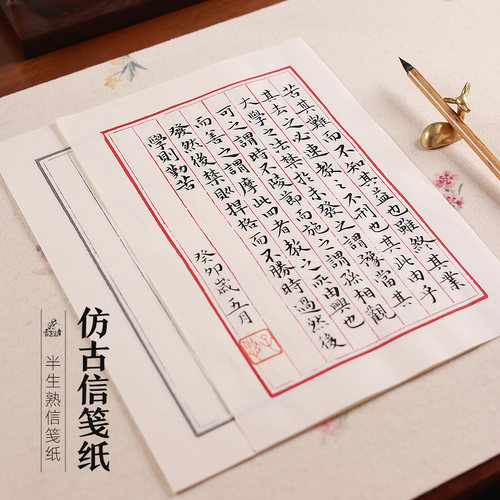 苦其難而不知其益也雖然其業
其去之必速教之不刑也其此由乎
大學之法禁於未發之謂豫當其
可之謂時不陵節而施之謂孫相觀
而善之謂摩此四者教之所由興也
發然後禁則捍格而不勝時過然後
學則勤苦
癸卯歲五月
仿古信笺纸
半生熟信笺纸